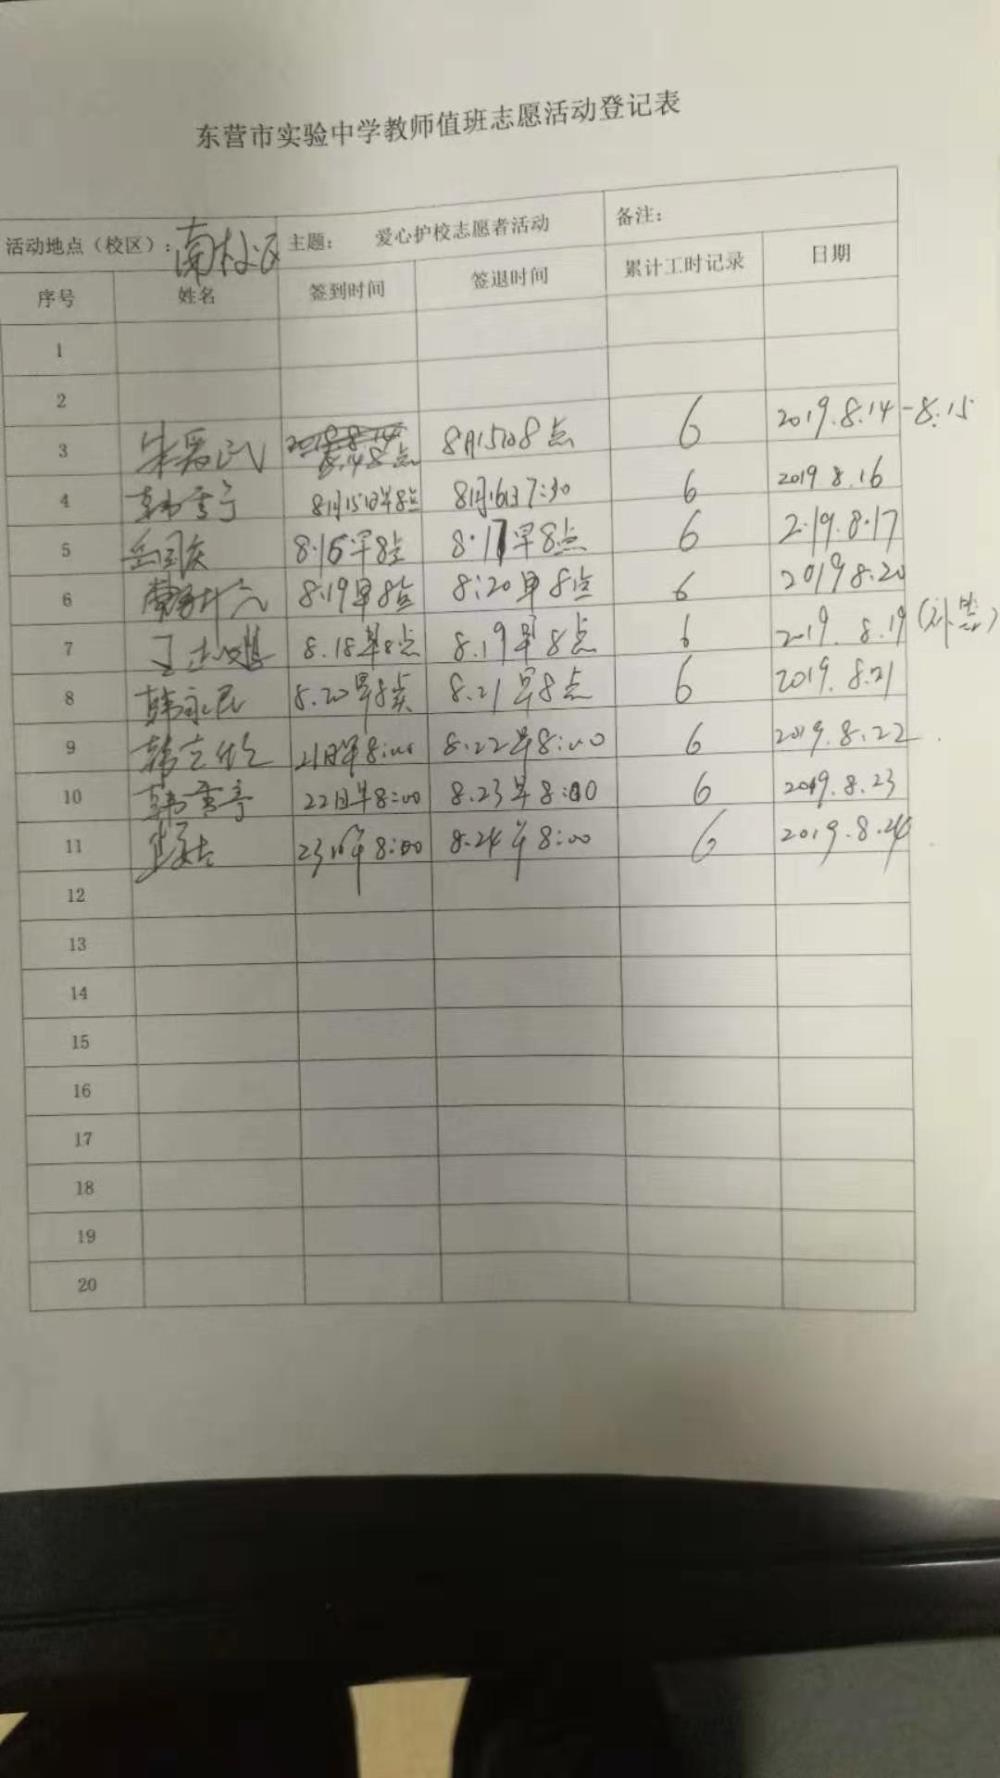 东营市实验中学教师值班志愿活动登记表
活动地点（校区）：南校区 主题： 爱心护校志愿者活动 备注：
序号 姓名 签到时间 签退时间 累计工时记录 日期
1
2
3 8.14 8点 8月15日8点 6 2019.8.14-8.15
4 8月15日早8点 8月16日7:30 6 2019 8.16
5 岳国庆 8.16早8点 8.17早8点 6 2019.8.17
6 8.19早8点 8:20早8点 6 2019 8.20
7 8.18早8点 8.19早8点 6 2019. 8.19(补签)
8 韩永民 8.20早8点 8.21早8点 6 2019. 8.21
9 21日早8:00 8.22早8:00 6 2019.8.22
10 22日早8:00 8.23早8:00 6 2019.8.23
11 23日早8:00 8.24早8:00 6 2019.8.24
12
13
14
15
16
17
18
19
20